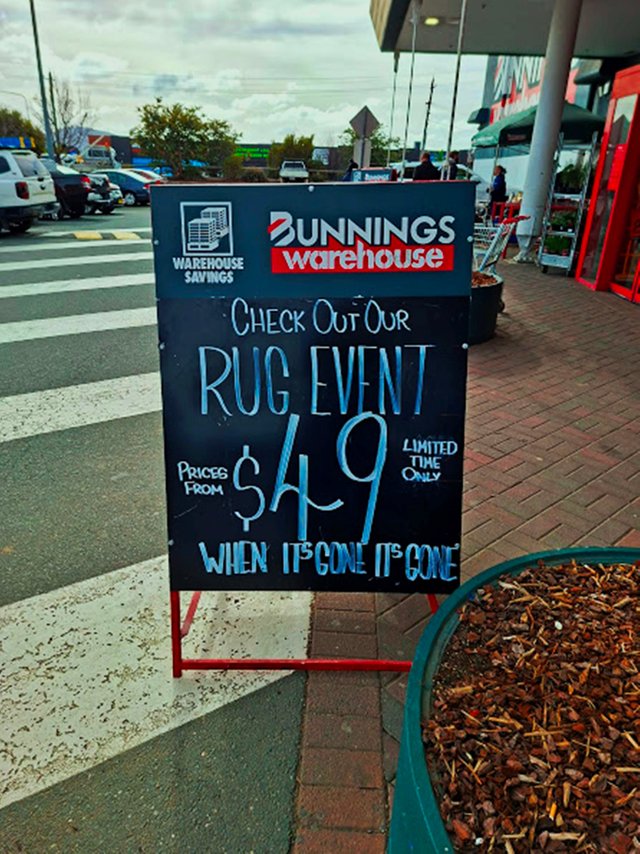 WAREHOUSE
SAVINGS
BUNNINGS
warehouse
CHECK OUT OUR
RUG EVENT
PRICES
FROM
$49
LIMITED
TIME
ONLY
WHEN IT'S GONE IT'S GONE